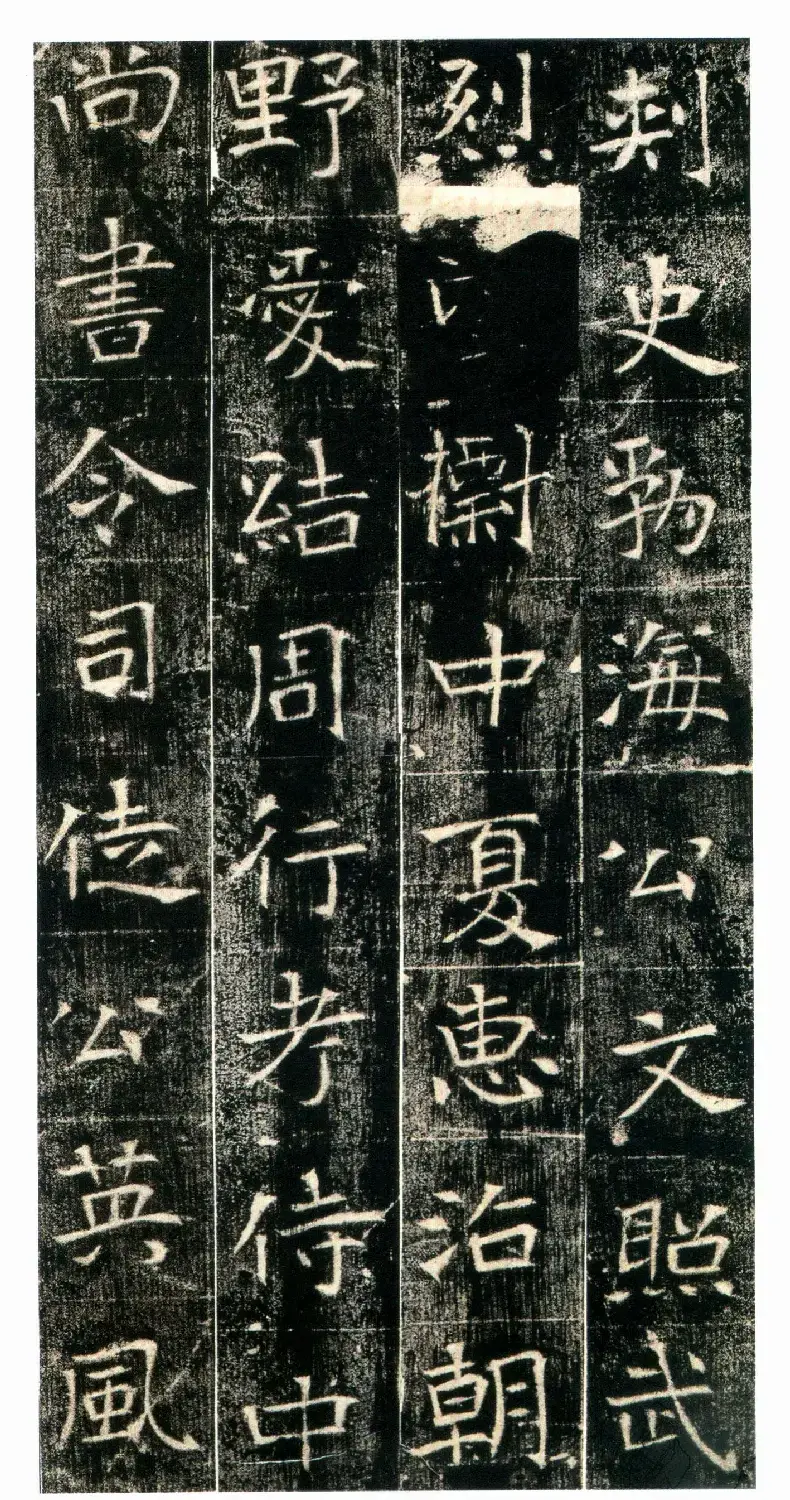 刺史勃海公文照武
烈衡中夏惠治朝
野愛結周行考侍中
尚書令司徒公英風